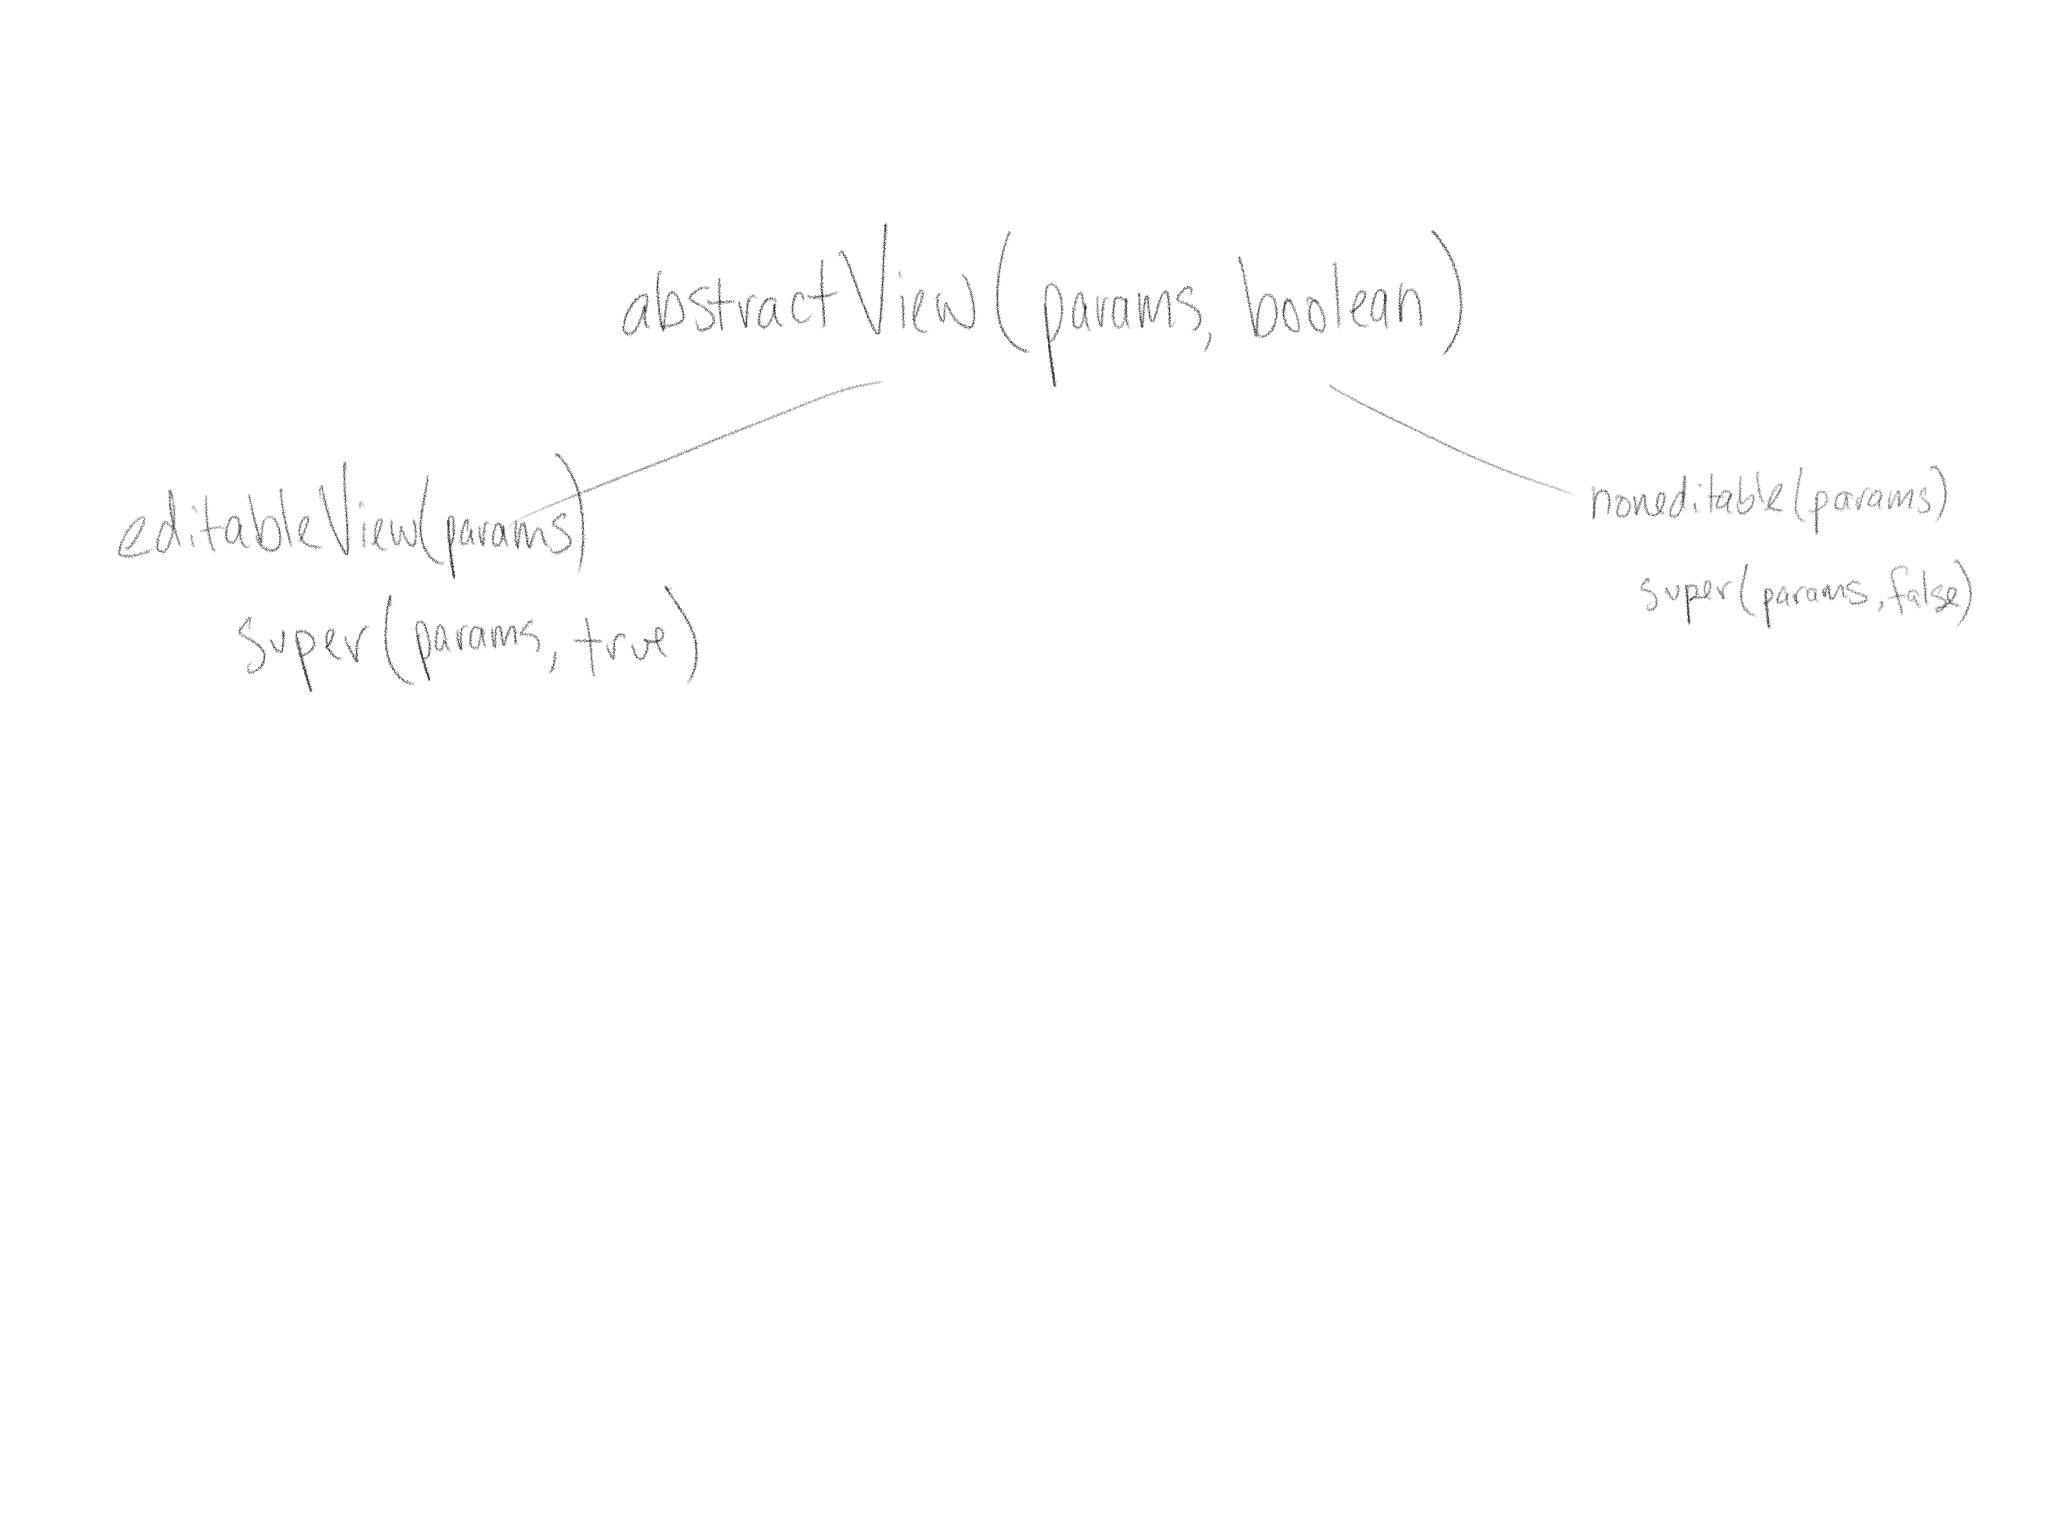 abstractView(params, boolean)
editableView(params)
super(params, true)
noneditable(params)
super(params, false)